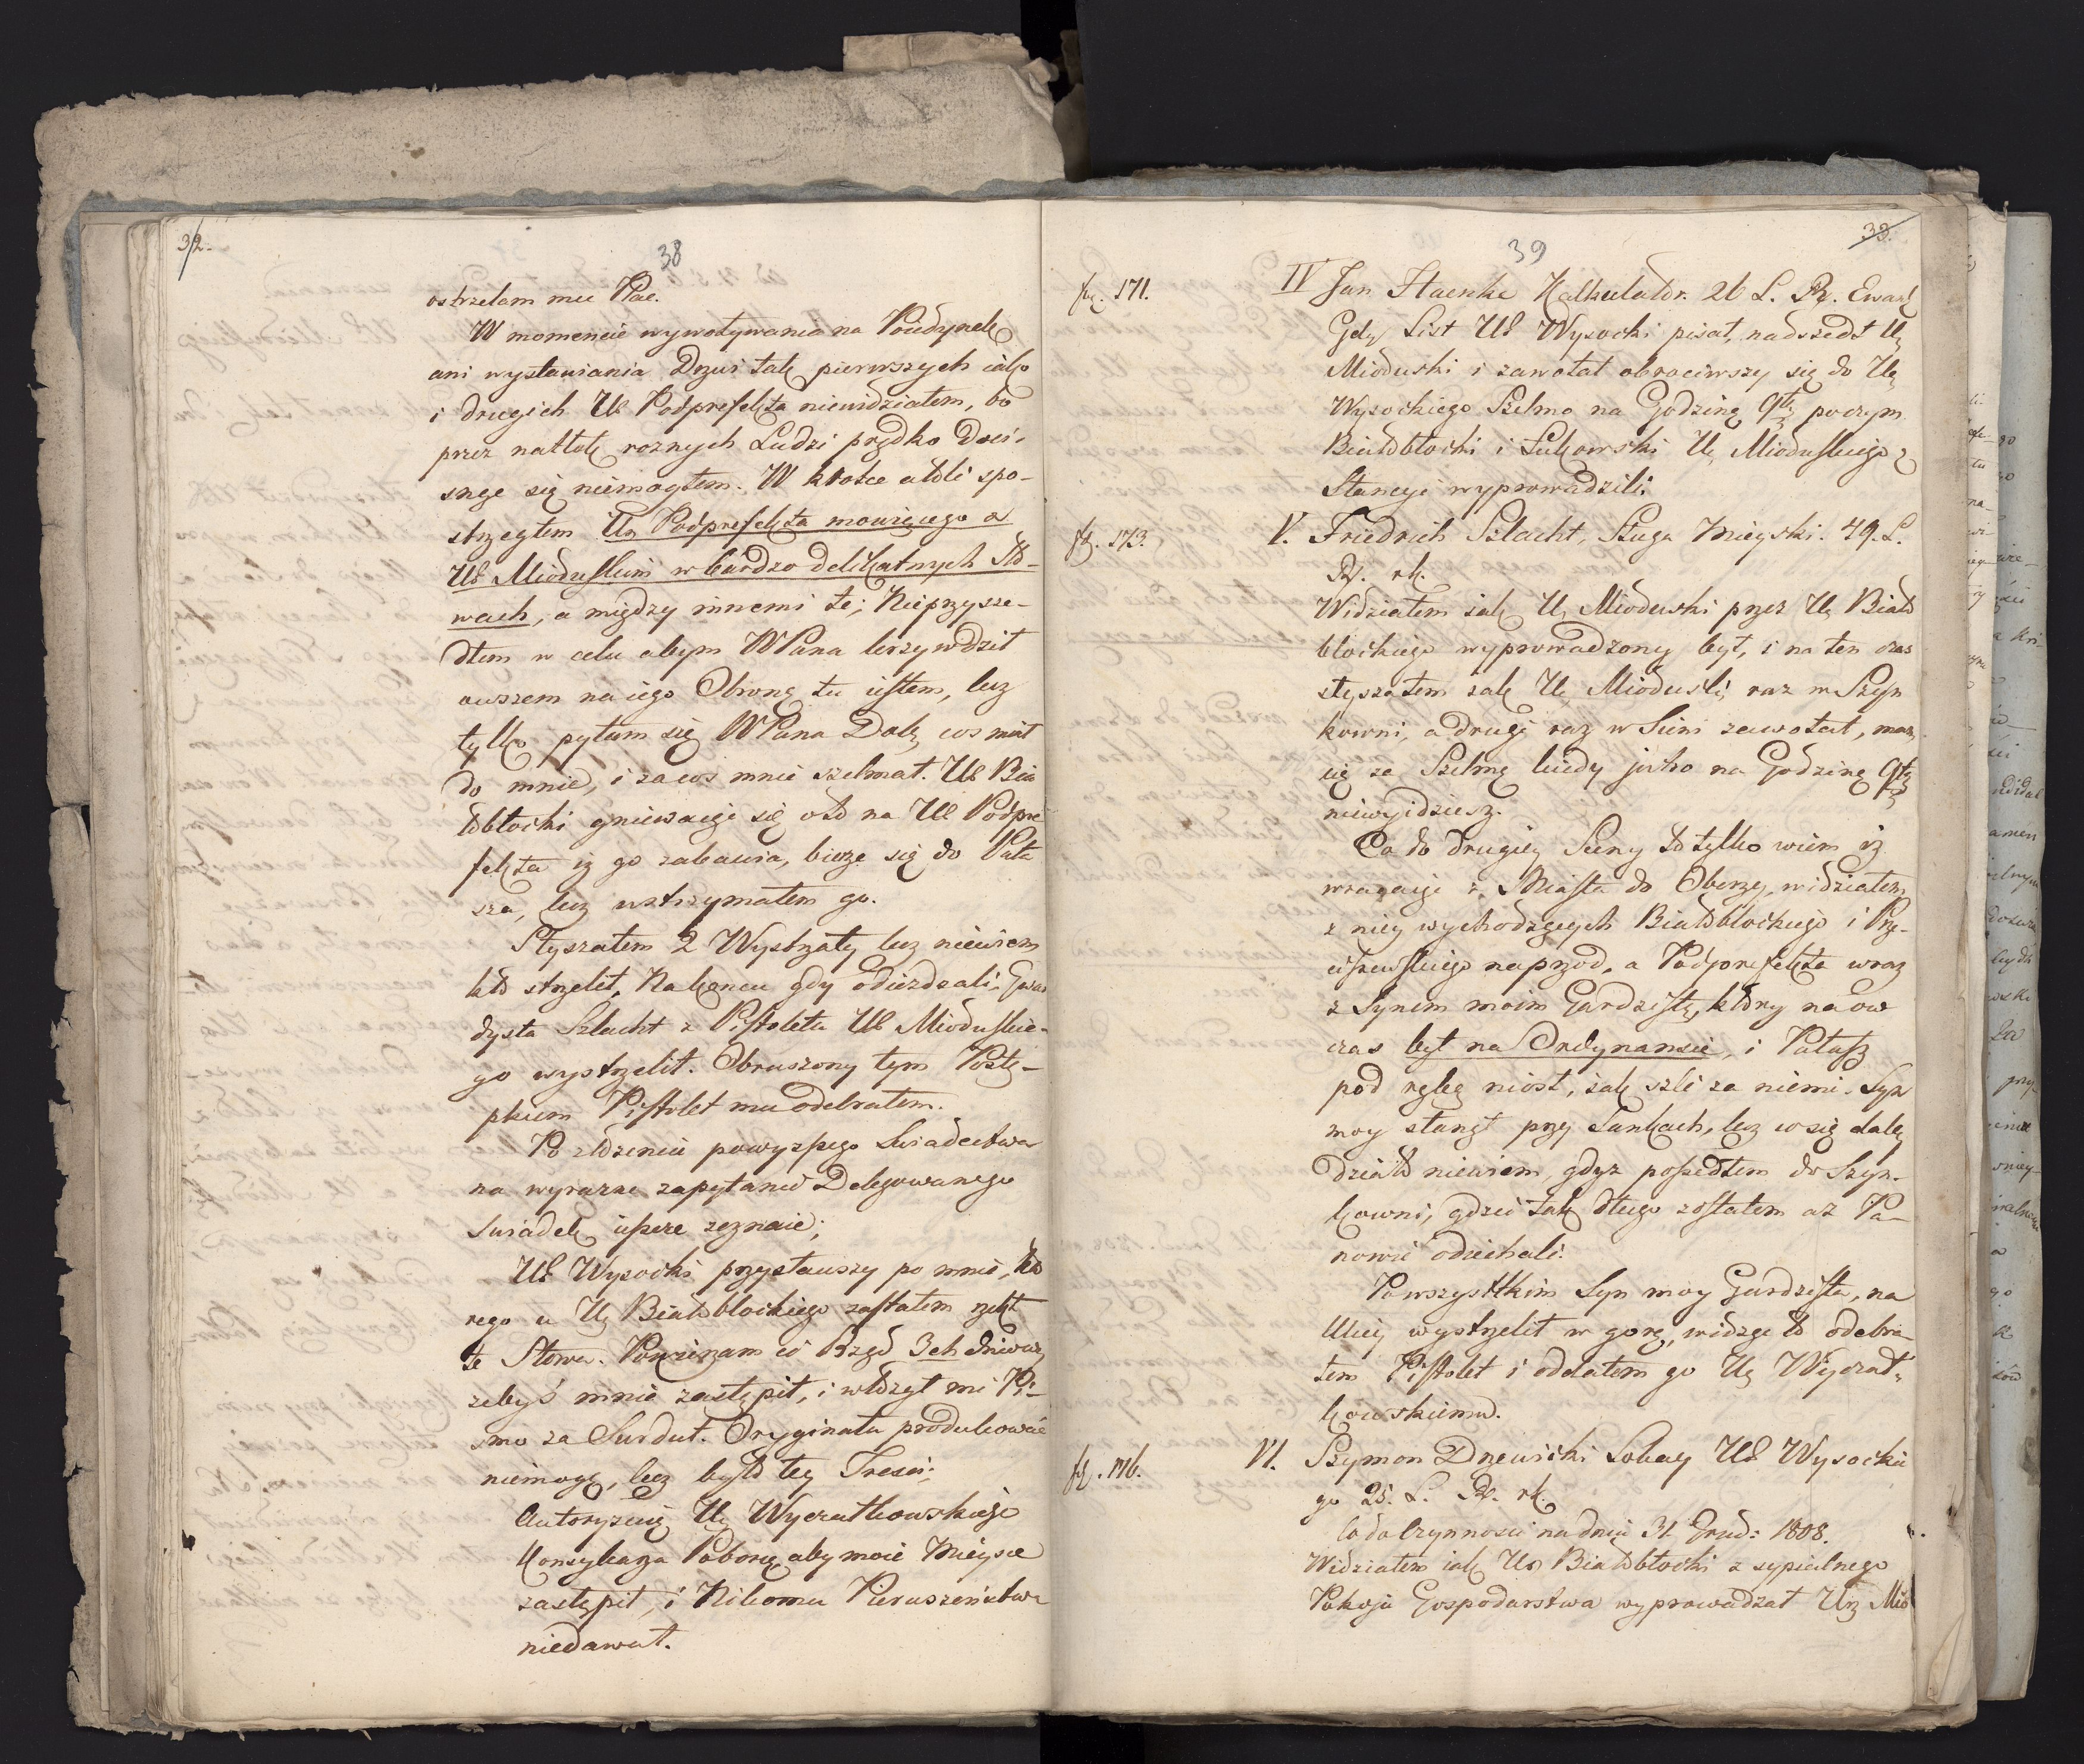 32.
38
ostrzelam mu Plac.
W momencie wywoływania na Poiedynek
ani wystawiania Drzwi tak pierwszych iako
i drugich Ur Podprefekta niewidziałem, bo
przez natłok roznych Ludzi prędko docis-
snąc się niemogłem. W krotce atoli spo-
strzegłem Ur Podprefekta mowiącego a
Ur Mioduskim w bardzo delikatnych Sło-
wach, a między innemi te; Nieprzysze-
dłem w celu abym WPana krzywdził
owszem na iego Obronę tu iestem, lecz
tylko pytam się WPana Dob. cos miał
do mnie, i zacos mnie szelmał. Ur Bia
łobłocki gniewaiąc się oto na Ur Podpre
fekta iż go zabawia, bierze się do Pała
sza, lecz wstrzymałem go.
Słyszałem 2 Wystrzały lecz niewiem
kto strzelił. Nakoncu gdy odiezdzali, Gwar
dysta Szlacht z Pistoleta Ur Mioduskie-
go wystrzelił. Obruszony tym Postę-
pkiem Pistolet mu odebrałem.
Po złożeniu powyższego Swiadectwa
na wyrazne zapytanie Delegowanego
Swiadek ieszcze zeznaie;
Ur Wysocki przysławszy po mnie, kto
rego u Ur Białobłockiego zastałem rzekł
te Słowa. Powierzam ci Rząd 3ch dniowy
zebyś mnie zastąpił, i włożył mi Pi-
smo za Surdut. Oryginału produkować
niemogę, lecz było tey Tresci;
Autoryzuię Ur Wyczatkowskiego
Konsyliarza Poborę aby moie Mieysce
zastąpił, i Nikomu Pierwszeństwa
niedawał.
39
33.
fg. 171.
IV Jan Staenke Kalkulator. 26 L. R. Ewang
Gdy List Ur Wysocki pisał, nadszedł Ur
Mioduski i zawołał obrociwszy się do Ur
Wysockiego Szelmo na Godzinę 9tą poczym
Białobłocki i Łukowski Ur Mioduskiego z
Stancyi wyprowadzili.
fg. 173.
V. Friedrich Szlacht, Sługa Mieyski. 49. L.
R. rk.
Widziałem iak Ur Mioduski przez Ur Biało
błockiego wyprowadzony był, i na ten czas
słyszałem iak Ur Mioduski, raz w Szyn
kowni, a drugi raz w Sieni zawołał, mam
cię za Szelmę kiedy jutro na Godzinę 9tą
niewyidziesz.
Co do drugiey Sceny to tylko wiem iż
wracaiąc z Miasta do Oberzy, widziałem
z niey wychodzących Białobłockiego i Prze-
ciszewskiego naprzod, a Podprefekta wraz
z Synem moim Gardzistą, ktory na ow
czas był na Ordynansie, i Pałasz
pod ręką niosł, iak szli za niemi. Syn
moy stanął przy Sankach, lecz co się daley
działo niewiem, gdyz poszedłem do Szyn-
kowni, gdzie tak długo zostałem az Pa-
nowie odiechali.
Powszystkim Syn moy Gardzista, na
Ulicy wystrzelił w gorę, widząc to odebra
łem Pistolet i oddałem go Ur Wyczat-
kowskiemu.
fg. 176.
VI. Szymon Drzewicki Lokay Ur Wysockie
go 25. L. R. rk.
Co do Czynnosci na dniu 31 Grud: 1808.
Widziałem iak Ur Białobłocki z sypialnego
Pokoju Gospodarstwa wyprowadzał Ur Mio